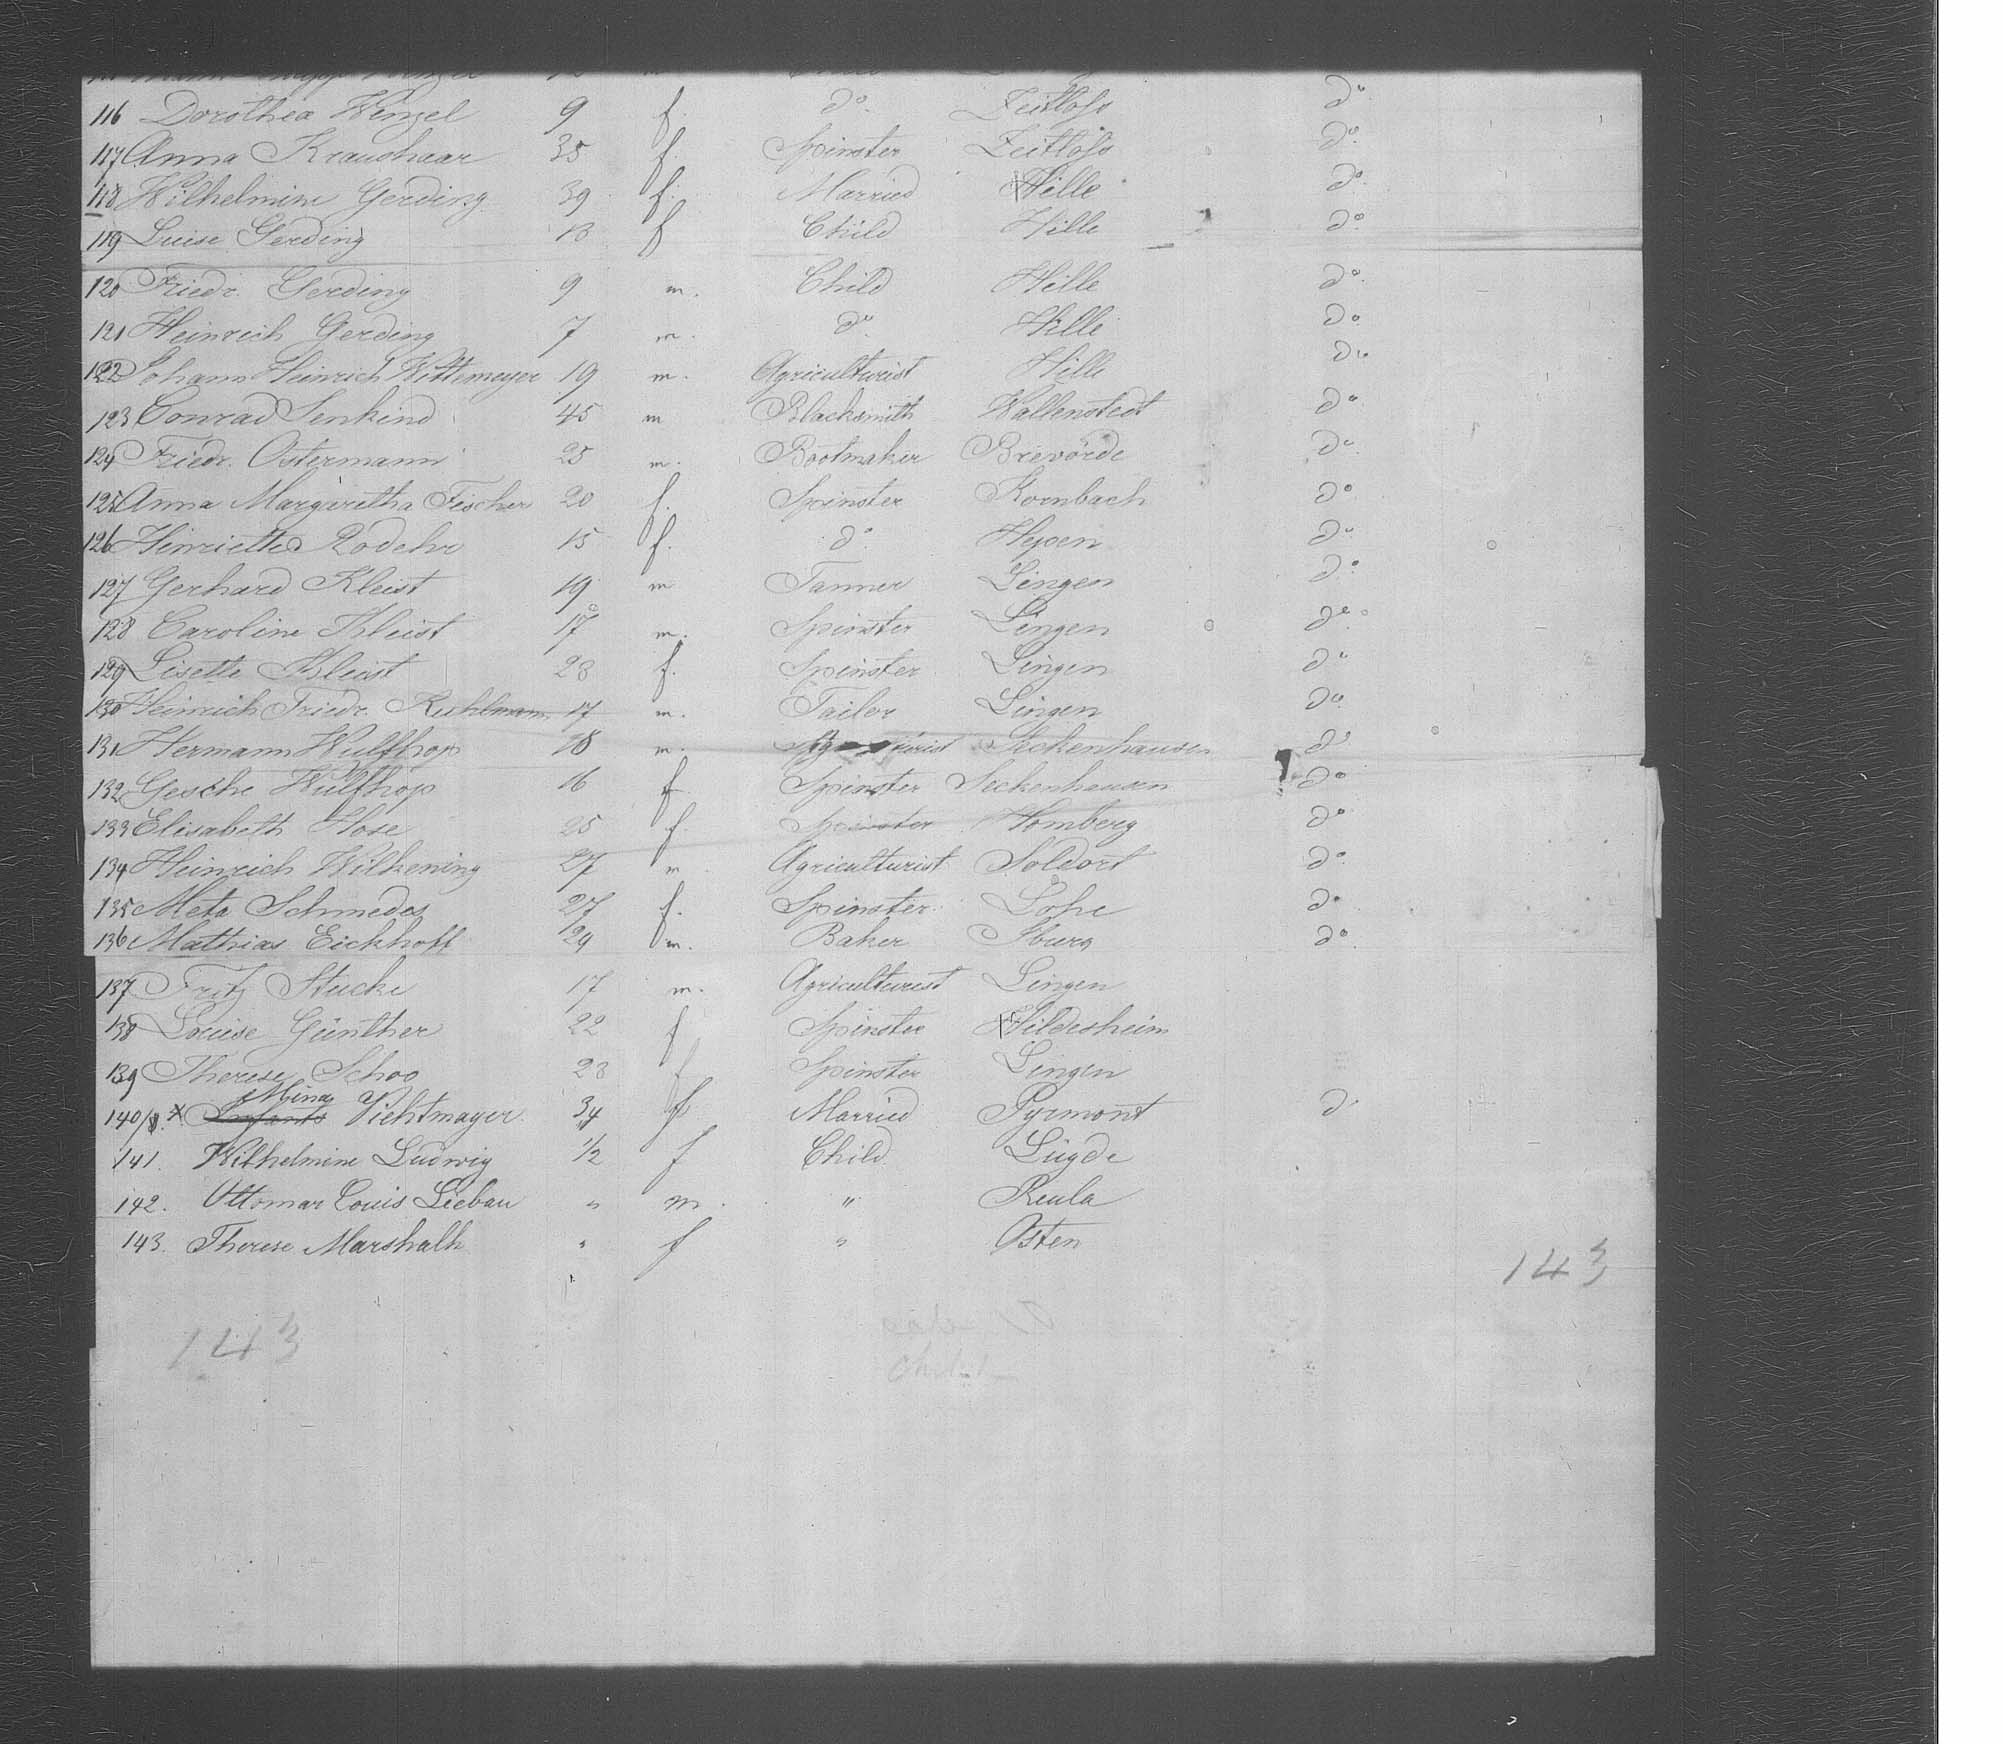 116 Dorothea Wenzel 9 f. do. Zeitlofs do.
117 Anna Kraushaar 35 f. Spinster Zeitlofs do.
118 Wilhelmine Gerding 39 f. Married Hille do.
119 Luise Gerding 13 f Child Hille do.
120 Friedr. Gerding 9 m. Child Hille do.
121 Heinrich Gerding 7 m. do. Hille do.
122 Johann Heinrich Wittemeyer 19 m. Agriculturist Hille do.
123 Conrad Senkind 45 m Blacksmith Wallenstedt do.
124 Friedr. Ostermann 25 m. Bootmaker Brevörde do.
125 Anna Margaretha Fischer 20 f. Spinster Kornbach do
126 Henriette Rodehr 15 f. do. Hepen do.
127 Gerhard Kleist 19 m Tanner Lingen do.
128 Caroline Kleist 17 m. Spinster Lingen do.
129 Lisette Kleist 23 f. Spinster Lingen do
130 Heinrich Friedr. Kuhlmann 17 m. Tailor Lingen do.
131 Hermann Wulfhop 18 m. Seckenhausen do
132 Gesche Wulfhop 16 f. Spinster Seckenhausen do
133 Elisabeth Hose 25 f. Spinster Homberg do
134 Heinrich Wilkening 27 m Agriculturist Soldorf do.
135 Meta Schmedes 27 f. Spinster Lohe do
136 Mathias Eickhoff 29 m. Baker Iburg do.
137 Fritz Stucke 17 m. Agriculturist Lingen
138 Louise Günther 22 f Spinster Hildesheim
139 Therese Schoo 23 f Spinster Lingen
Mina
140/8. x Infants Vichtmayer. 34 f Married Pyrmont do
141. Wilhelmine Ludwig 1/2 f Child Lügde
142. Ottomar Louis Liebau " m. " Reula
143. Therese Marshalk " f " Osten
143
143
Child